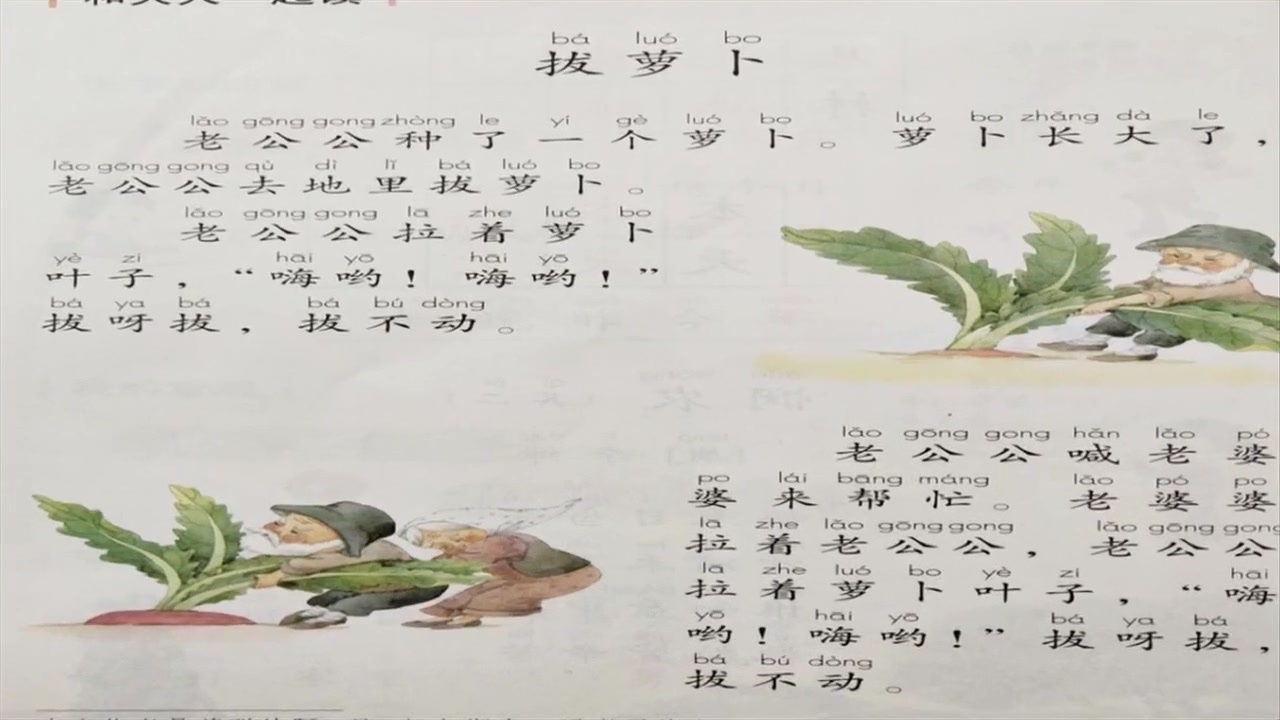 bá luó bo
拔萝卜
lǎo gōng gong zhòng le yí gè luó bo luó bo zhǎng dà le
老公公种了一个萝卜。萝卜长大了，
lǎo gōng gong qù dì lǐ bá luó bo
老公公去地里拔萝卜。
lǎo gōng gong lā zhe luó bo
老公公拉着萝卜
yè zi hāi yō hāi yō
叶子，“嗨哟！嗨哟！”
bá ya bá bá bú dòng
拔呀拔，拔不动。
lǎo gōng gong hǎn lǎo pó
老公公喊老婆
po lái bāng máng lǎo pó po
婆来帮忙。老婆婆
lā zhe lǎo gōng gong lǎo gōng gong
拉着老公公，老公公
lā zhe luó bo yè zi hāi
拉着萝卜叶子，“嗨
yō hāi yō bá ya bá
哟！嗨哟！”拔呀拔，
bá bú dòng
拔不动。